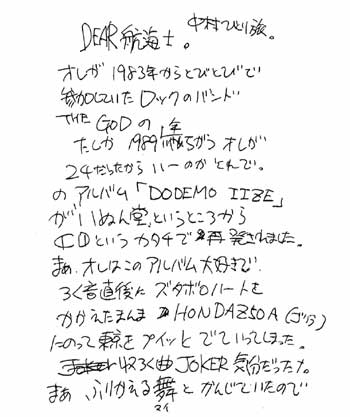 DEAR航海士。
中村ひとり旅。
オレが1983年からとびとびで
参加していたロックのバンド
THE GODの1年
たしか1989年がらオレが
24だったから ハーのか それで。
のアルバム「DODEMO IIZE」
が いぬん堂というところから
CDというカタチで再発されました。
まぁ、オレはこのアルバム大好きで、
ろく音直後にズタボロハートを
かかえたまんま HONDA Z50A(ゴリラ)
にのって東京をプイッとでていってしまった。
収ろく曲JOKER気分だった?。
まぁ、ふりかえる舞とかんじていたので
マイ